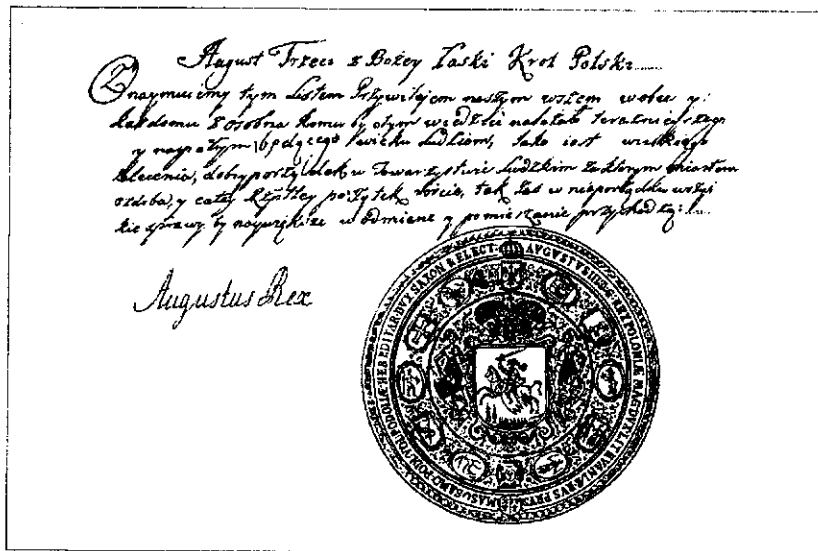 August Trzeci z Bożey Łaski Krol Polski
Znaymuiemy tym Listem Przywileiem naszym wszem wobec y
każdemu z osobna komu by o tym wiedzieć należało teraznieyszego
y napotym będącego wieku Ludziom, Jako iest wielkiego
zalecenia, dobry porządek w Towarzystwie Ludzkim
ozdoba, y całey pożytek rośćie, tak zaś w nieporządku wszys
kie sprawy by naywiększe w odmianę y pomieszanie przychodzą
Augustus Rex
AVGVSTVS III REX POLONIÆ MAG DVX LITHVANIÆ RVS PRVS
MAS SAMO PODLACHIÆ HEREDITAR DVX SAXON & ELECT